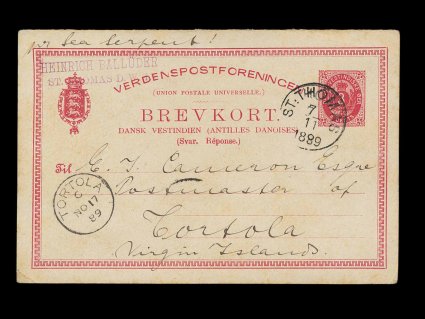 pr Sea Serpent!
HEINRICH BALLUDER
ST. THOMAS D.
VERDENSPOSTFORENINGEN
(UNION POSTALE UNIVERSELLE.)
BREVKORT.
DANSK VESTINDIEN (ANTILLES DANOISES)
(Svar. Réponse.)
ST: THOMAS
7
11
1889
Til C. J. Cameron Esqre
Postmaster of
Tortola
Virgin Islands.
TORTOLA
C
NO 17
89